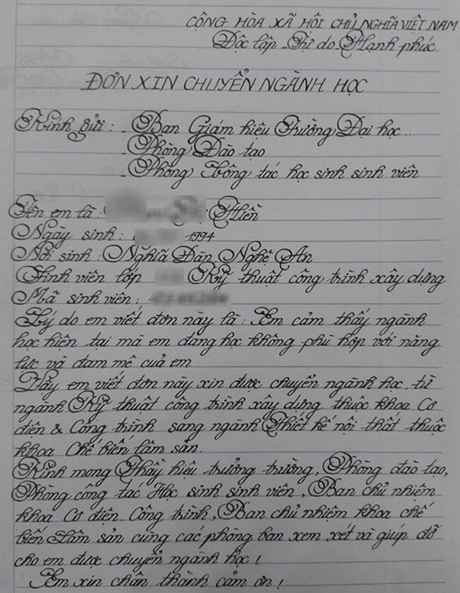 CỘNG HÒA XÃ HỘI CHỦ NGHĨA VIỆT NAM
Độc lập - Tự do - Hạnh phúc
ĐƠN XIN CHUYỂN NGÀNH HỌC
Kính gửi: - Ban Giám hiệu Trường Đại học...
- Phòng Đào tạo
- Phòng Công tác học sinh sinh viên
Tên em là: Hiền
Ngày sinh: 1994
Nơi sinh: Nghĩa Đàn, Nghệ An
Sinh viên lớp Kỹ thuật công trình xây dựng
Mã sinh viên:
Lý do em viết đơn này là: Em cảm thấy ngành
học hiện tại mà em đang học không phù hợp với năng
lực và đam mê của em
Nay em viết đơn này xin được chuyển ngành học từ
ngành Kỹ thuật công trình xây dựng thuộc khoa Cơ
điện & Công trình sang ngành Thiết kế nội thất thuộc
khoa Chế biến lâm sản.
Kính mong Thầy hiệu trưởng trường, Phòng đào tạo,
Phòng công tác Học sinh sinh viên, Ban chủ nhiệm
khoa Cơ điện Công trình, Ban chủ nhiệm khoa chế
biến Lâm sản cùng các phòng ban xem xét và giúp đỡ
cho em được chuyển ngành học!
Em xin chân thành cảm ơn!